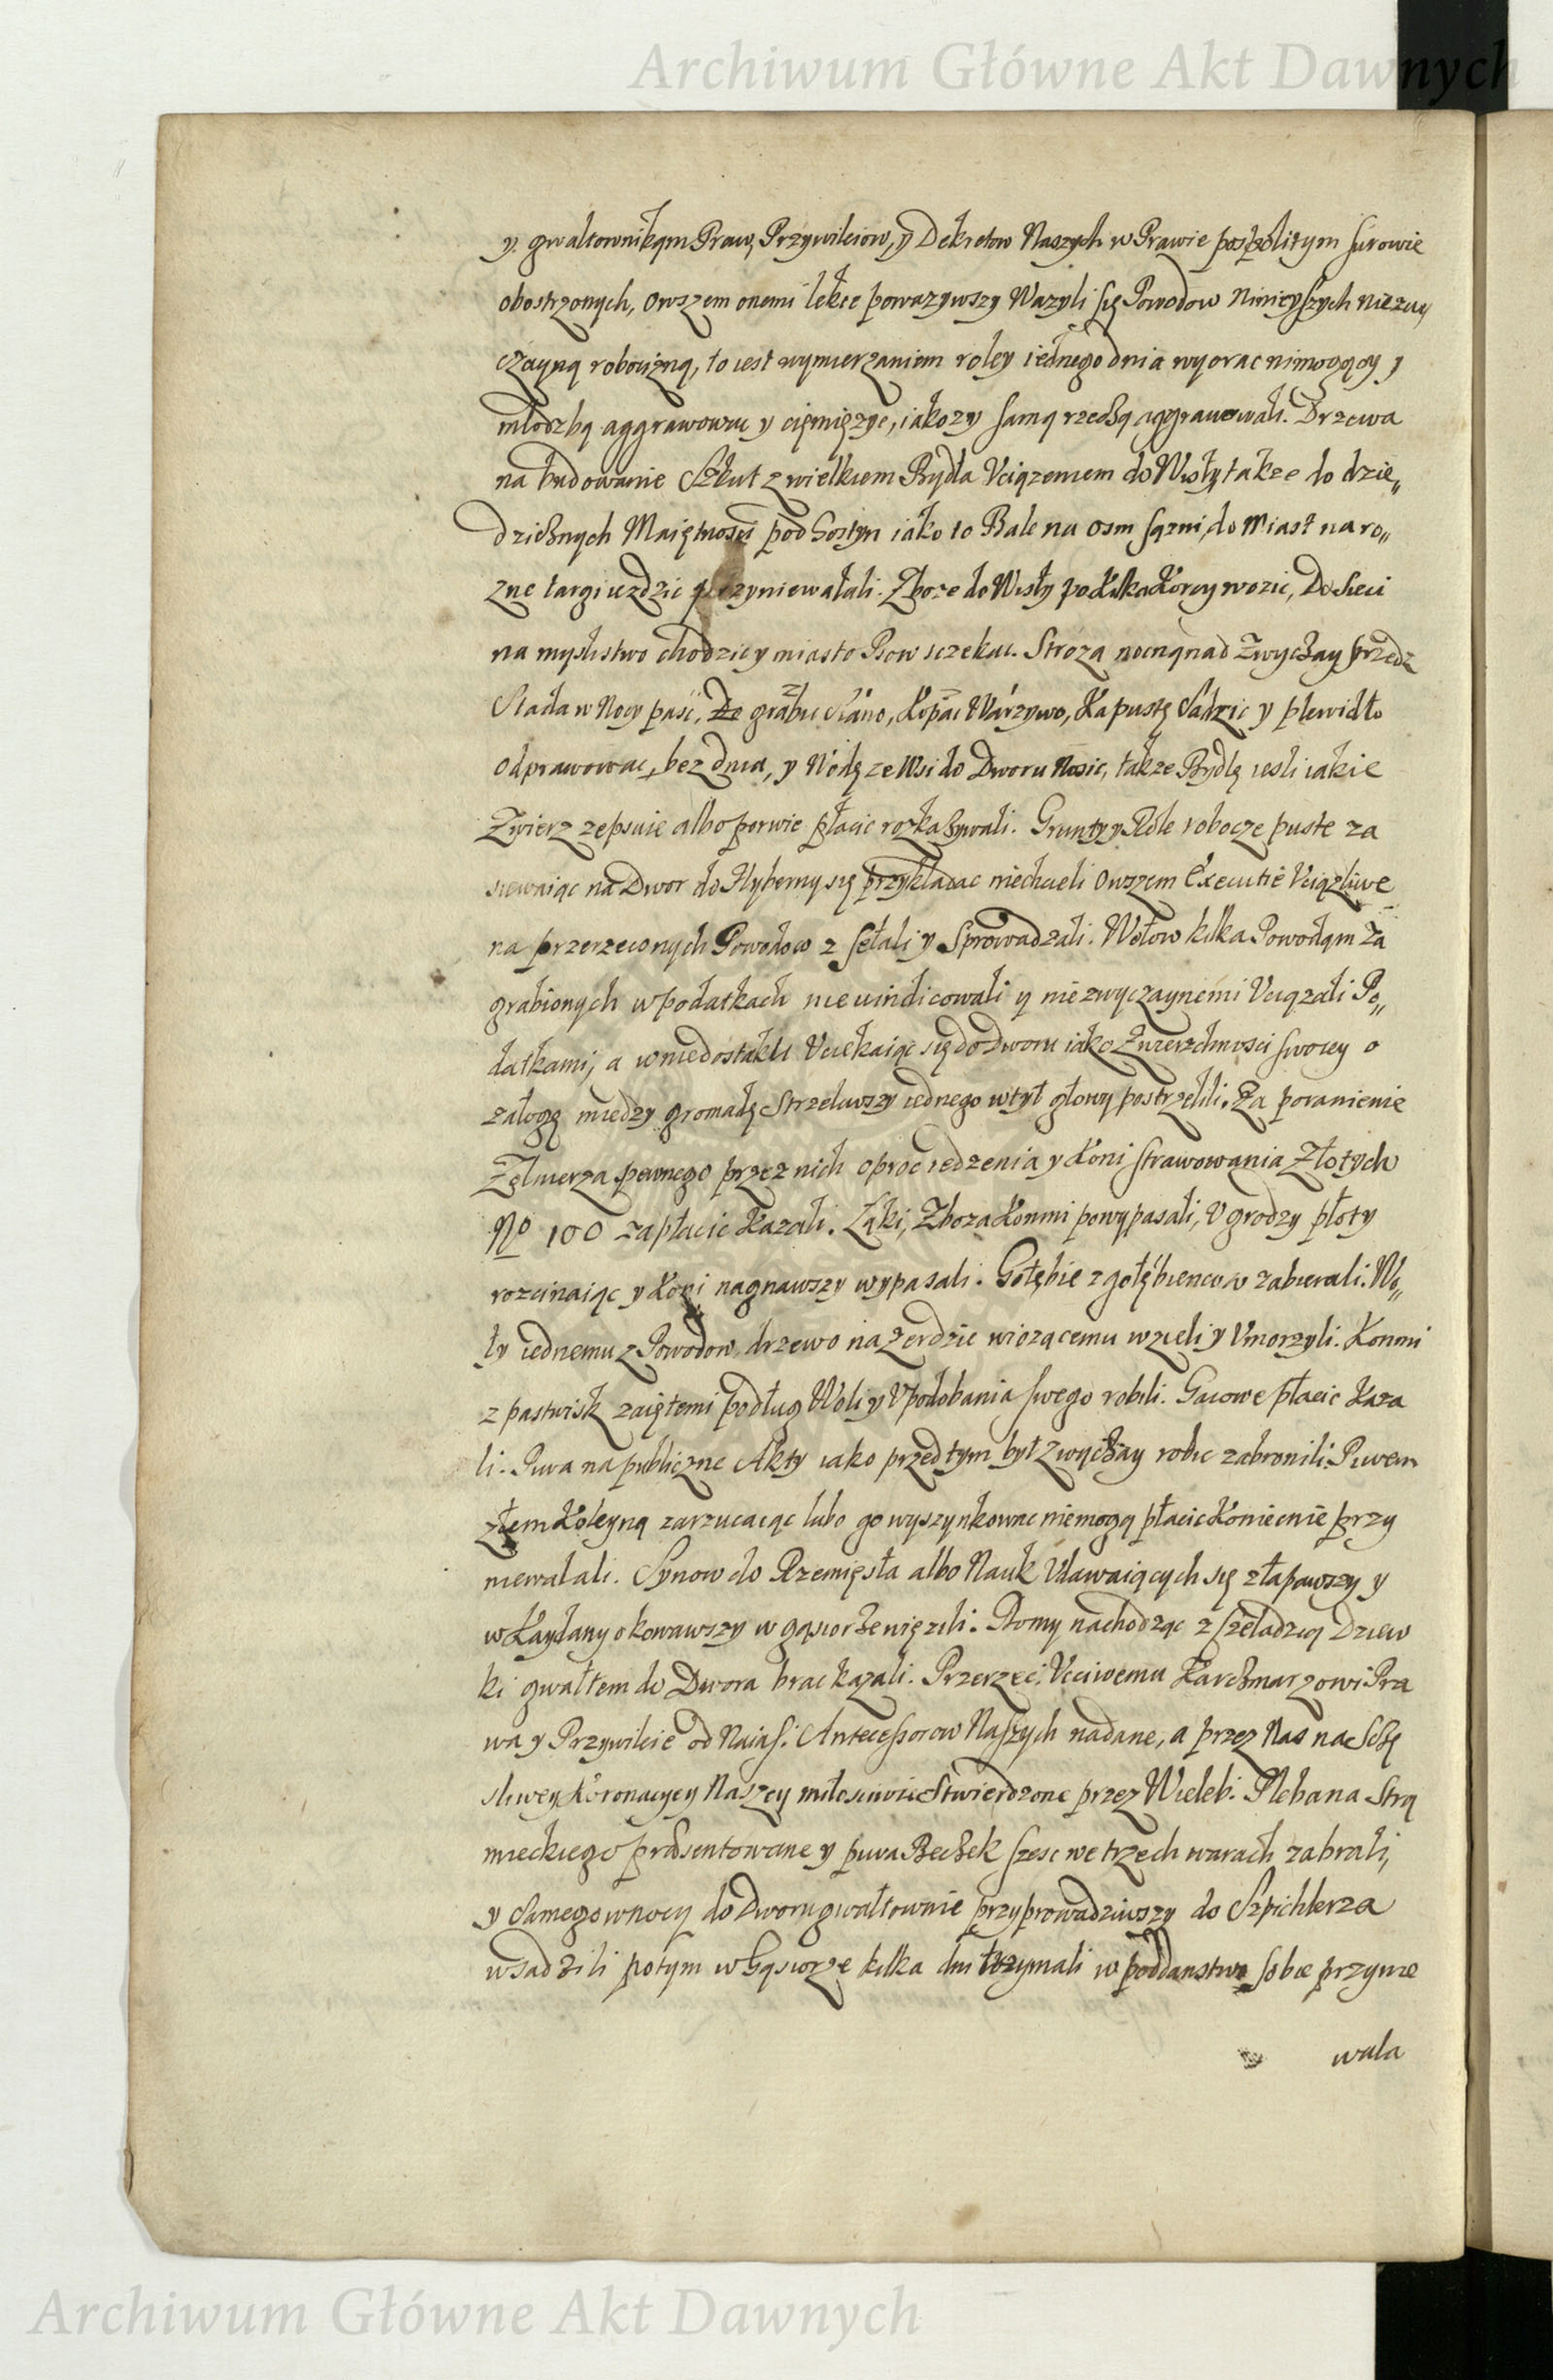 Archiwum Główne Akt Dawnych
y gwałtownikąm Praw, Przywileiow, y Dekretow Naszych w Prawie pospolitym surowie
obostrzonych, owszem onemi lekce powazywszy Wazyli się Powodow Ninieyszych niezwy
czayną robocizną, to iest wymierzaniem roley iednego dnia wyorac nimogący y
młodzbą aggrawowac y cięmięzyc, iakozy samą rzeczą aggrauowali. Drzewa
na budowanie Szkut z wielkiem Bydła Uciązeniem do Wisły takze do dzie„
dzicznych Maiętnosci pod Gostyn iako to Bale na osm sązni, do Miast na ro„
zne targi iezdzic przyniewalali. Zboze do Wisły po kilka Korcy wozic, Do sieci
na myslistwo chodzic y miasto Psow sczekac. Stroza nocną nad Zwyczay przedz
Stada w Nocy pasc, Do grabic Siano, Kopac Warzywo, Kapustę Sadzic y plewidło
odprawowac, bez dnia, y Wodę ze Wsi do Dworu Nosic, takze Bydlę iesli iakie
Zwierz zepsuie albo porwie płacic rozkazywali. Grunty y Role robocze puste za
siewaiąc na Dwor do Hyberny się przykladac niechcieli owszem Executie Uciązliwe
na przerzeconych Powodow z sełali y Sprowadzali. Wołow kilka Powodąm za
grabionych w podatkach nie uindicowali y niezwyczaynemi Uciązali Po„
datkami, a w niedostatku Uciekaiąc się do Dworu iako Zwierzchnosci swoiey o
załogę miedzy gromadę Strzeliwszy iednego w tył głowy postrzelili. Za poranienie
Zołnierza pewnego przez nich oproc iedzenia y Koni strawowania Złotych
No 100 zapłacic Kazali. Łąki, Zboza Konmi powypasali, Ugrodzy płoty
rozcinaiąc y Koni nagnawszy wypasali. Gołębie z gołębiencow zabierali. Wo„
ły iednemu z Powodow drzewo na zerdzie wiozącemu wzieli y Umorzyli. Konmi
z pastwisk zaiętemi podług Woli y Upodobania swego robili. Gaiowe płacic kaza
li. Piwa na publiczne Akty iako przedtym był zwyczay robic zabronili. Piwem
złem Koleyną zarzucaiąc lubo go wyszynkowac niemogą płacic Koniecnie przy
niewalali. Synow do Rzemięsła albo Nauk Udawaiących się złapawszy y
w Kaydany okowawszy w gąsiorze więzili. Domy nachodząc z szeladzią Dziew
ki gwałtem do Dwora brac kazali. Przerzec: Uciwemu Karczmarzowi Pra
wa y Przywileie od Naias: Antecessorow Naszych nadane, a przez Nas na Sczę
sliwey Koronacyey Naszey miłosciwie Stwierdzone przez Wieleb: Plebana Strą
mieckiego praesentowane y piwa Beczek szesc we trzech warach zabrali,
y Samego w nocy do Dworu gwałtownie przyprowadziwszy do Szpichlerza
wsadzili potym w Gąsiorze kilka dni trzymali w poddanstwo sobie przynie
wala
Archiwum Główne Akt Dawnych